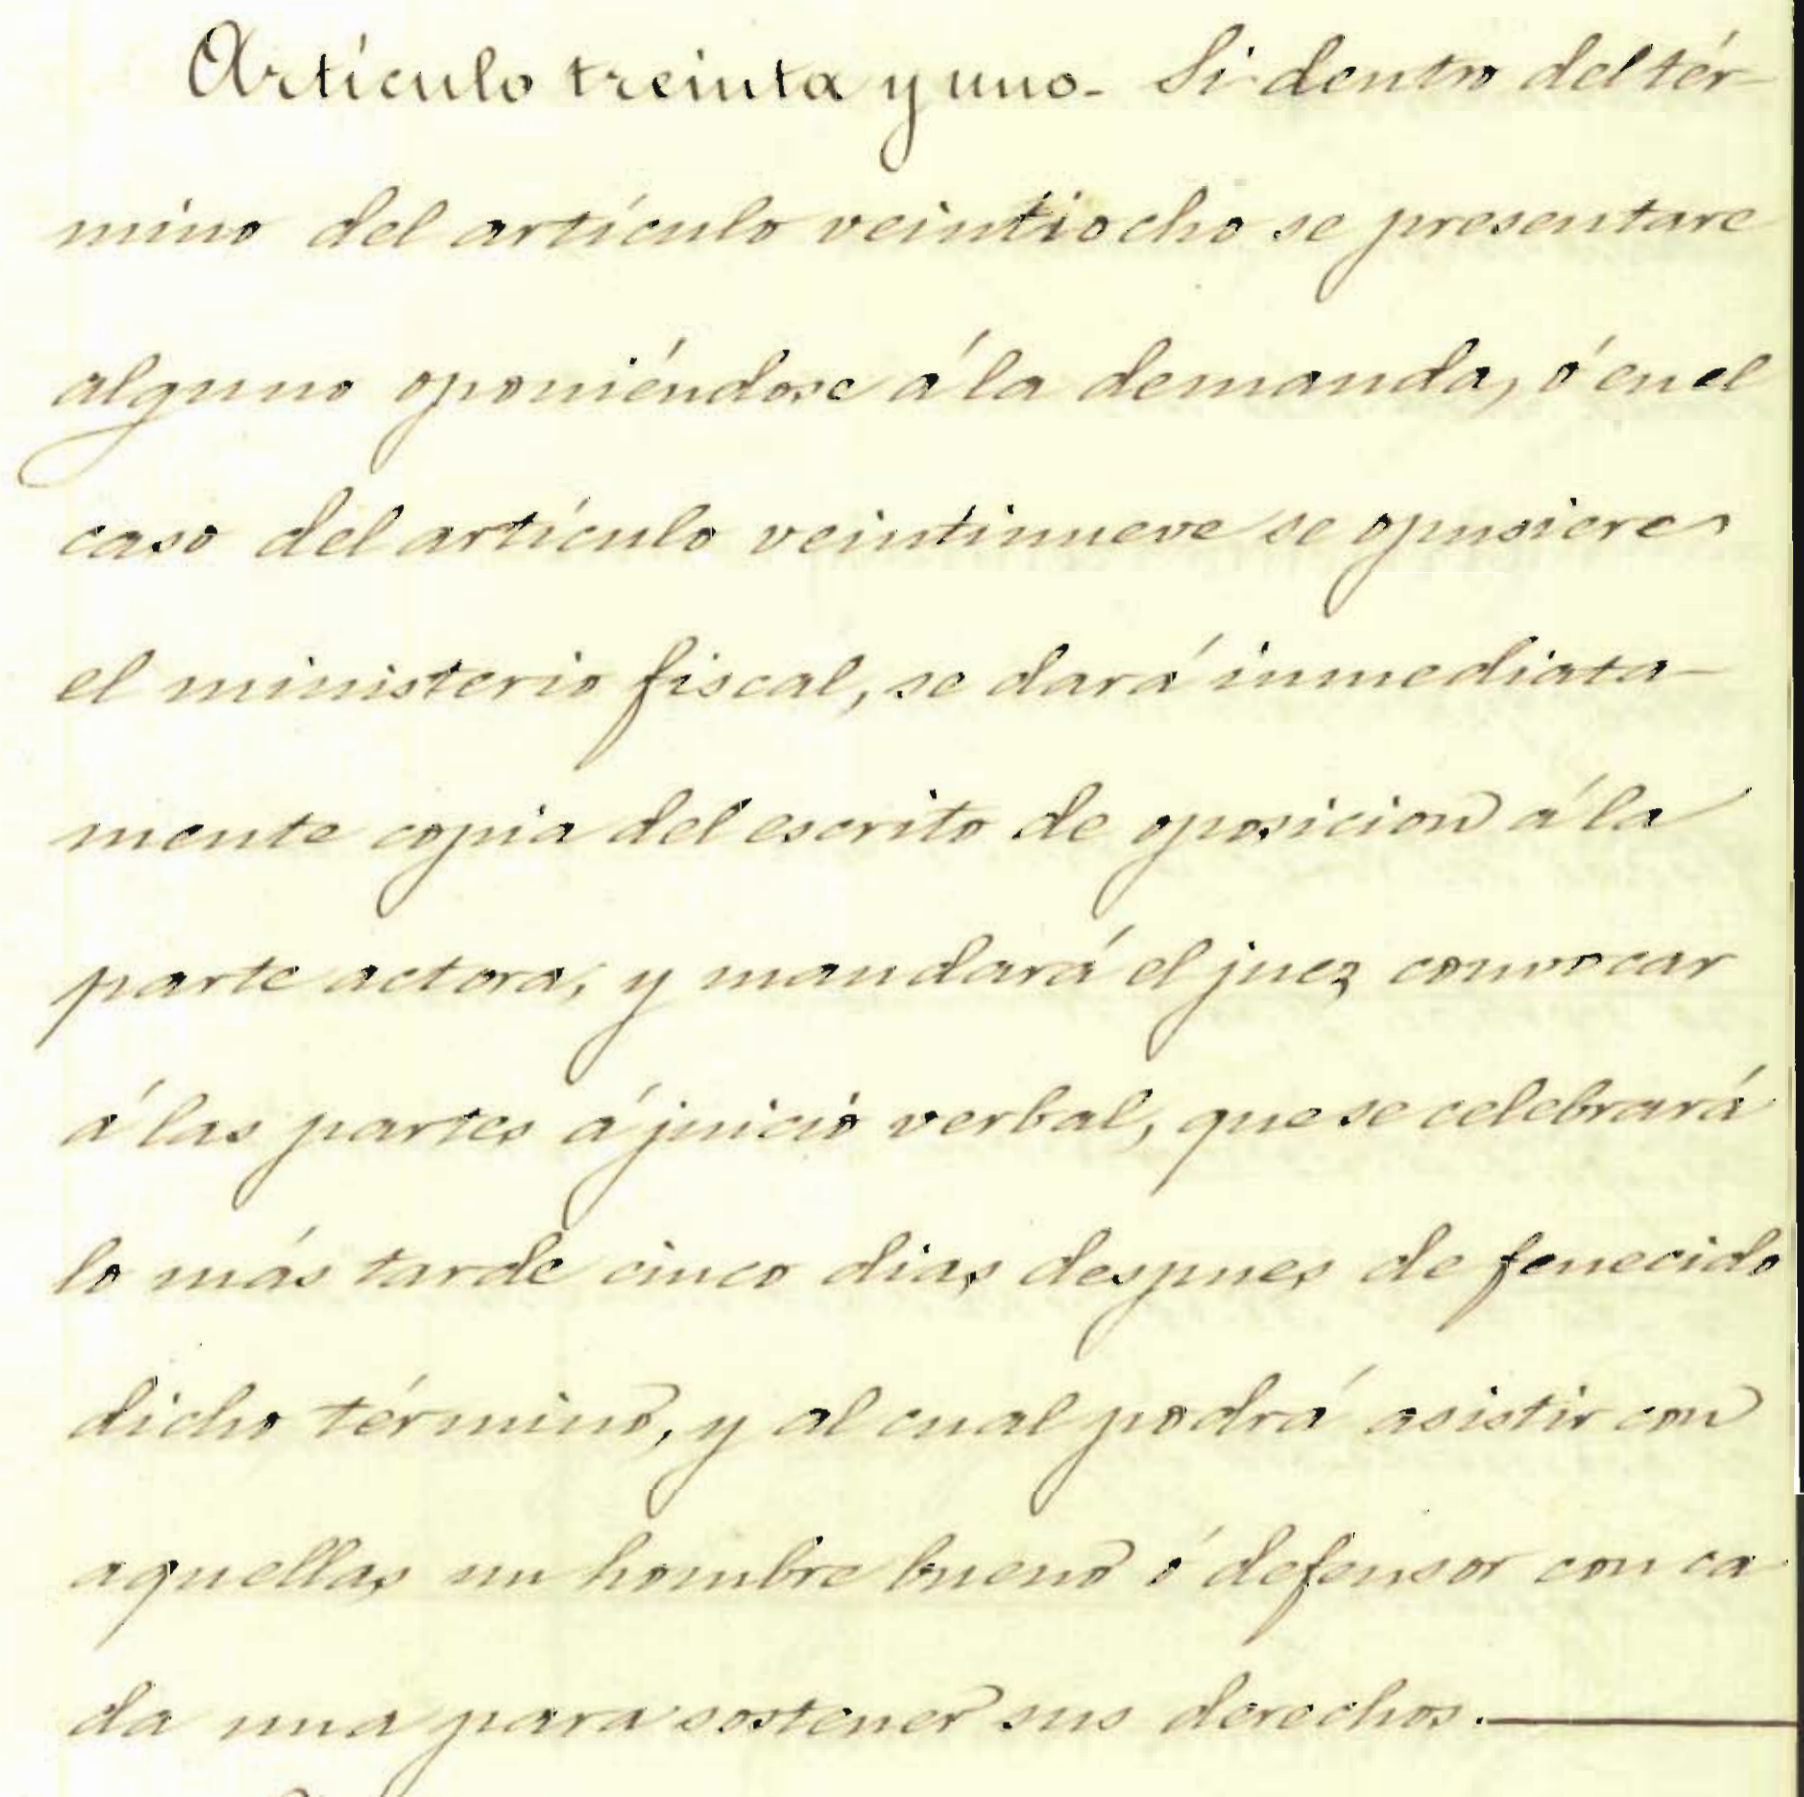 Artículo treinta y uno- Si dentro del tér-
mino del artículo veintiocho se presentare
alguno oponiéndose á la demanda, ó en el
caso del artículo veintinueve se opusiere
el ministerio fiscal, se dará inmediata-
mente copia del escrito de oposicion á la
parte actora; y mandará el juez convocar
á las partes á juicio verbal, que se celebrará
lo más tarde cinco dias despues de fenecido
dicho término, y al cual podrá asistir con
aquellas un hombre bueno ó defensor con ca-
da una para sostener sus derechos.